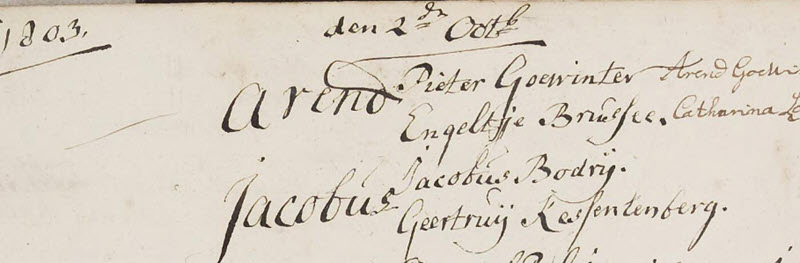 1803.
den 2dn Octb
Arend Pieter Goewinter Arend
Engeltje Brussee. Catharina
Jacobus Jacobus Bodrij.
Geertruij Kessenlenberg.